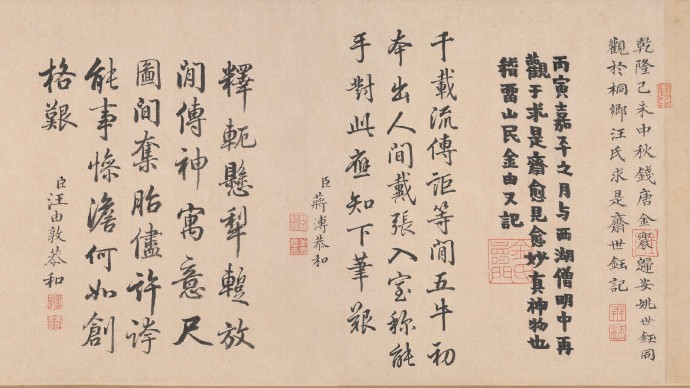 乾隆己未中秋錢唐金農歸安姚世鈺同
觀於桐鄉汪氏求是齋世鈺記
丙寅嘉平之月與西湖僧明中再
觀于求是齋愈見愈妙真神物也
稽畱山民金由又記
千載流傳詎等閒五牛初
本出人間戴張入室稱能
手對此應知下筆艱
臣蔣溥恭和
釋軛懸犁蹔放
閒傳神寓意尺
圖間奪胎儘許誇
能事慘澹何如創
格艱
臣汪由敦恭和